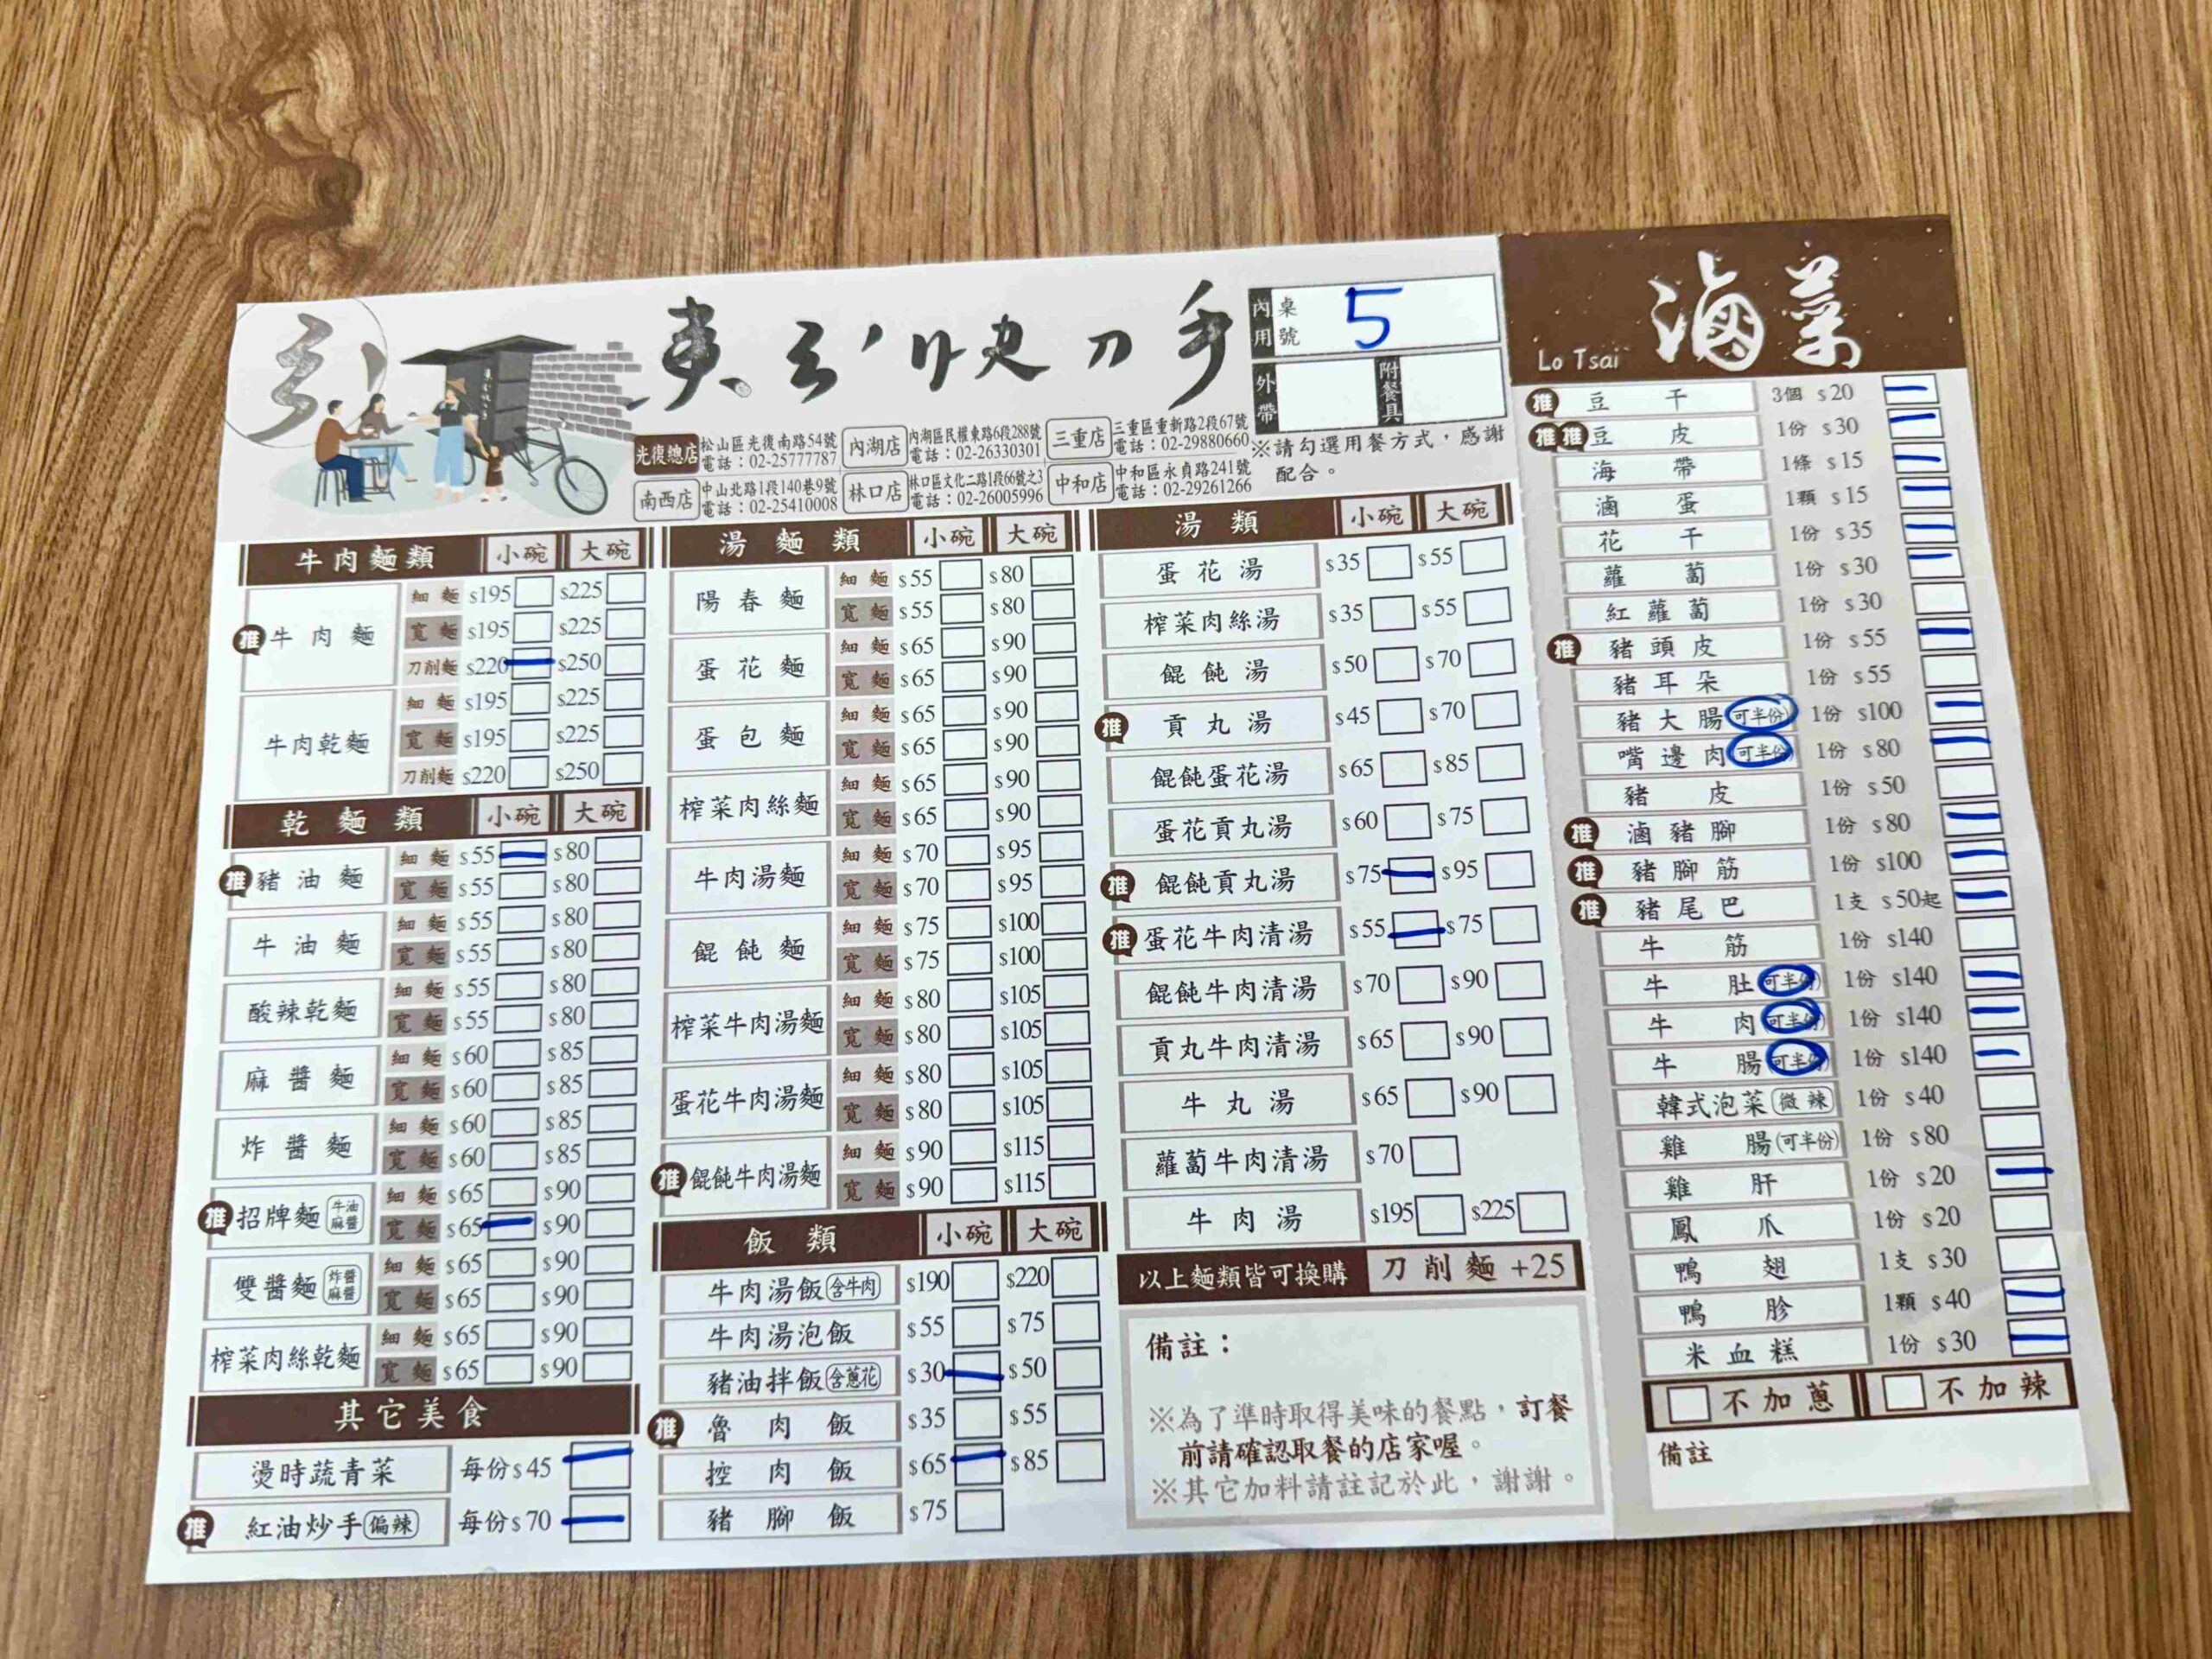 東引快刀手
內用 桌號 5
外帶 附餐具
※請勾選用餐方式，感謝配合。
光復總店 松山區光復南路54號 電話：02-25777787
內湖店 內湖區民權東路6段288號 電話：02-26330301
三重店 三重區重新路2段67號 電話：02-29880660
南西店 中山北路1段140巷9號 電話：02-25410008
林口店 林口區文化二路1段66號之3 電話：02-26005996
中和店 中和區永貞路241號 電話：02-29261266
牛肉麵類 小碗 大碗
推 牛肉麵
細麵 $195 $225
寬麵 $195 $225
刀削麵 $220 $250
牛肉乾麵
細麵 $195 $225
寬麵 $195 $225
刀削麵 $220 $250
乾麵類 小碗 大碗
推 豬油麵
細麵 $55 $80
寬麵 $55 $80
牛油麵
細麵 $55 $80
寬麵 $55 $80
酸辣乾麵
細麵 $55 $80
寬麵 $55 $80
麻醬麵
細麵 $60 $85
寬麵 $60 $85
炸醬麵
細麵 $60 $85
寬麵 $60 $85
推 招牌麵 牛油麻醬
細麵 $65 $90
寬麵 $65 $90
雙醬麵 炸醬麻醬
細麵 $65 $90
寬麵 $65 $90
榨菜肉絲乾麵
細麵 $65 $90
寬麵 $65 $90
其它美食
燙時蔬青菜 每份$45
推 紅油炒手 偏辣 每份$70
湯麵類 小碗 大碗
陽春麵
細麵 $55 $80
寬麵 $55 $80
蛋花麵
細麵 $65 $90
寬麵 $65 $90
蛋包麵
細麵 $65 $90
寬麵 $65 $90
榨菜肉絲麵
細麵 $65 $90
寬麵 $65 $90
牛肉湯麵
細麵 $70 $95
寬麵 $70 $95
餛飩麵
細麵 $75 $100
寬麵 $75 $100
榨菜牛肉湯麵
細麵 $80 $105
寬麵 $80 $105
蛋花牛肉湯麵
細麵 $80 $105
寬麵 $80 $105
推 餛飩牛肉湯麵
細麵 $90 $115
寬麵 $90 $115
飯類 小碗 大碗
牛肉湯飯 含牛肉 $190 $220
牛肉湯泡飯 $55 $75
豬油拌飯 含蔥花 $30 $50
推 魯肉飯 $35 $55
控肉飯 $65 $85
豬腳飯 $75
湯類 小碗 大碗
蛋花湯 $35 $55
榨菜肉絲湯 $35 $55
餛飩湯 $50 $70
推 貢丸湯 $45 $70
餛飩蛋花湯 $65 $85
蛋花貢丸湯 $60 $75
推 餛飩貢丸湯 $75 $95
推 蛋花牛肉清湯 $55 $75
餛飩牛肉清湯 $70 $90
貢丸牛肉清湯 $65 $90
牛丸湯 $65 $90
蘿蔔牛肉清湯 $70
牛肉湯 $195 $225
以上麵類皆可換購 刀削麵 +25
備註：
※為了準時取得美味的餐點，訂餐
前請確認取餐的店家喔。
※其它加料請註記於此，謝謝。
滷菜
Lo Tsai
推 豆干 3個 $20
推推 豆皮 1份 $30
海帶 1條 $15
滷蛋 1顆 $15
花干 1份 $35
蘿蔔 1份 $30
紅蘿蔔 1份 $30
推 豬頭皮 1份 $55
豬耳朵 1份 $55
豬大腸(可半份) 1份 $100
嘴邊肉(可半份) 1份 $80
豬皮 1份 $50
推 滷豬腳 1份 $80
推 豬腳筋 1份 $100
推 豬尾巴 1支 $50起
牛筋 1份 $140
牛肚(可半份) 1份 $140
牛肉(可半份) 1份 $140
牛腸(可半份) 1份 $140
韓式泡菜 微辣 1份 $40
雞腸(可半份) 1份 $80
雞肝 1份 $20
鳳爪 1份 $20
鴨翅 1支 $30
鴨胗 1顆 $40
米血糕 1份 $30
不加蔥 不加辣
備註